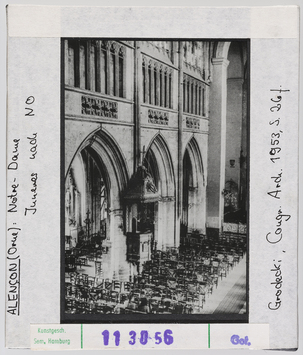 ALENÇON (Orne): Notre-Dame
Inneres nach NO
Grodecki, Congr. Arch. 1953, S. 26f.
Kunstgesch.
Sem. Hamburg
11 30 56
Col.